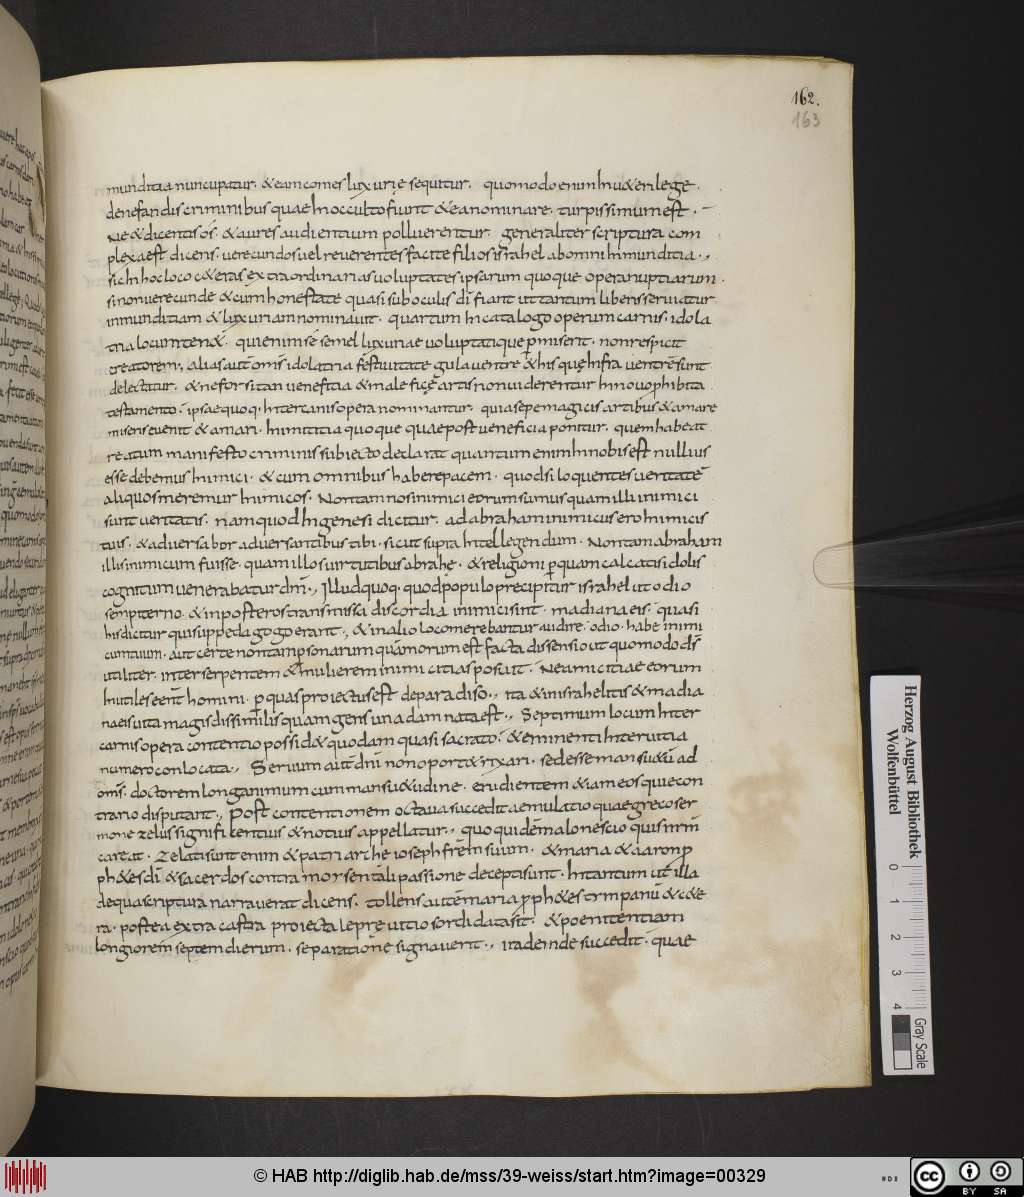 162.
163
munditia nuncupatur. & eam comes luxuriȩ sequitur. quomodo enim hi n u&eri lege.
denefandis criminibus quae in occulto fiunt & ea nominare. turpissimum est.
Ne & dicentis os. & aures audientium polluerentur. generaliter scriptura com
plexa est dicens. verecundos uel reverentes facite filios israhel ab omni inmunditia.,
sic in hoc loco c&eras extraordinarias uoluptates ipsarum quoque opera nuptiarum.
si non verecunde & cum honestate quasi sub oculis dī fiant ut tantum liberis serviatur
inmunditiam & luxuriam nominavit. quartum in catalogo operum carnis. idola
tria locum ten&. qui enim se semel luxuriae uoluptatique p̄miserit. non respicit
creatorem. alias aut omīs idolatria festivitate gula ventre & his quȩ infra ventrē sunt
delectatur. & ne forsitan veneficia & maleficȩ artis non viderentur in novo prohibita
testamento. ipsae quoq. inter carnis opera nominantur. quia sepe magicis artibus & amare
miseris evenit & amari. inimitia quoque quae post veneficia ponitur. quem habeat
reatum manifesto criminis subiecto declarat quantum enim in nobis est nullius
esse debemus inimici. & cum omnibus habere pacem. quod si loquentes veritatē
aliquos meremur inimicos. Non tam nos inimici eorum sumus quam illi inimici
sunt veritatis. nam quod in genesi dicitur. ad abraham inimicus ero inimicis
tuis. & adversabor adversantibus tibi. sicut supra intellegendum. Non tam abraham
illis inimicum fuisse. quam illos virtutibus abrahȩ. & religioni p quam calcatis idolis
cognitum venerabatur dm̄., Illud quoq. quod populo precipitur israhel ut odio
sempiterno. & in posteros transmissa discordia inimici sint. madianaeis. quasi
his dicitur qui sub pedagogo erant., & in alio loco merebantur audire. odio habe inimi
cum tuum. aut certe non tam psonarum quam morum est facta dissensio ut quomodo ds̄
utiliter. inter serpentem & mulierem inimicitias posuit. Ne amicitiae eorum
inutiles eent homini. p quas proiectus est de paradiso., ita & in israhelitis & madia
naeis vita magis dissimilis quam gens una damnata est., Septimum locum inter
carnis opera contentio possid& quodam quasi sacrato. & eminenti inter vitia
numero conlocata., Servum aut dni non oport& rixari. sed esse mansu&u ad
oms. doctorem longanimum cum mansu&udine. erudientem & iam eos qui e con
trario disputant., Post contentionem octava succedit aemulatio quae greco ser
mone zelus significentius & notius appellatur., quo quidem malo nescio quis nrm
careat. Zelati sunt enim & patriarche ioseph frem suum. & maria & aaron p
ph&es di. & sacerdos contra morsen tali passione decepti sunt. in tantum ut illa
de qua scriptura narraverat dicens. tollens autē maria pph&es timpanū & c&e
ra. postea extra castra proiecta leprȩ vitio sordidata sit. & poenitentiam
longiorem septem dierum. separatione signaverit., ita deinde succedit. quae
Herzog August Bibliothek
Wolfenbüttel
0 1 2 3 4
Gray Scale
© HAB http://diglib.hab.de/mss/39-weiss/start.htm?image=00329
cc BY SA